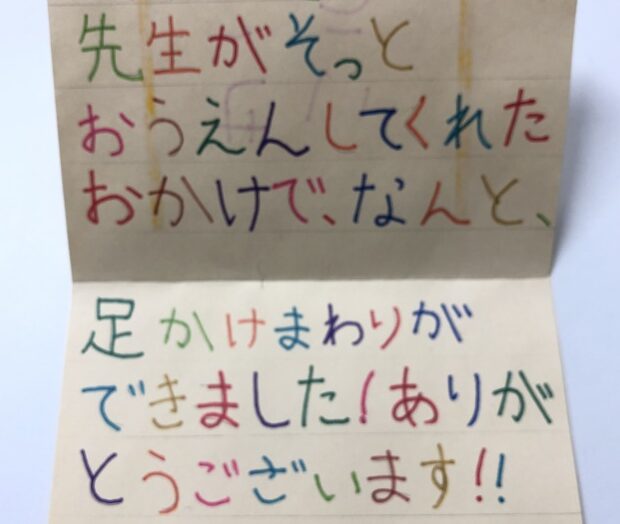 先生がそっと
おうえんしてくれた
おかけで、なんと、
足かけまわりが
できました!ありが
とうございます!!